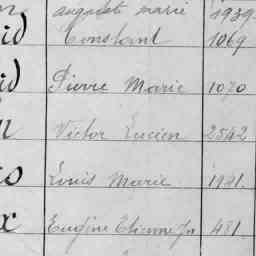 auguste marie 1939
id Constant 1069
id Pierre Marie 1070
Victor Lucien 2542
Louis Marie 1921.
x Eugène Etienne Jn 481.